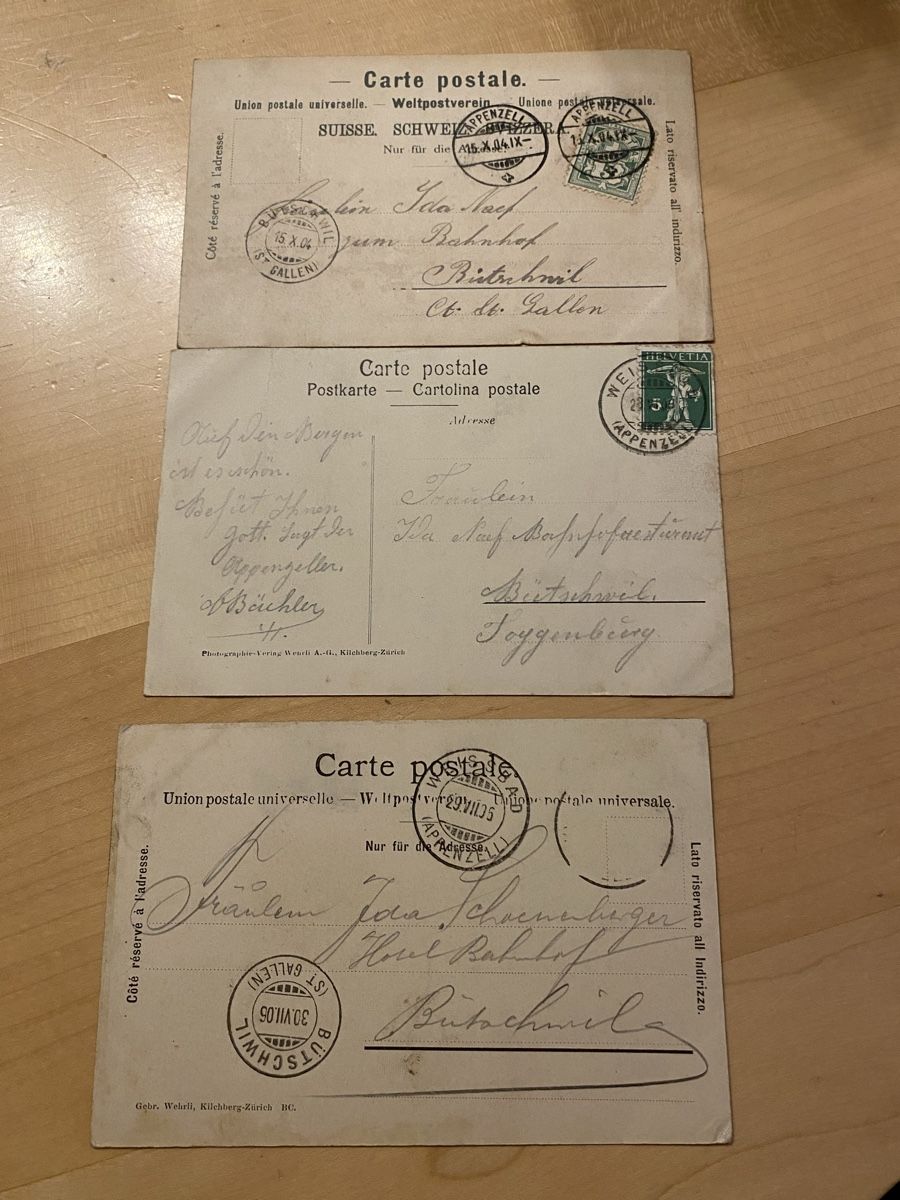 — Carte postale. —
Union postale universelle. — Weltpostverein. — Unione postale universale.
SUISSE. SCHWEIZ. SVIZZERA.
Nur für die Adresse.
Côté réservé à l'adresse.
Lato riservato all' indirizzo.
APPENZELL
15.X.04.IX–
APPENZELL
15.X.04.IX–
5
BÜTSCHWIL
15.X.04
(ST GALLEN)
Fräulein Ida Naef
zum Bahnhof
Bütschwil
Ct. St. Gallen
Carte postale
Postkarte — Cartolina postale
Adresse
HELVETIA
5
(APPENZELL)
Auf den Bergen
ist es schön.
Behüt Ihnen
Gott. Sagt der
Appenzeller.
Bächler
Fräulein
Ida Naef Bahnhofrestaurant
Bütschwil.
Toggenburg
Photographie-Verlag Wehrli A.-G., Kilchberg-Zürich
Carte postale
Union postale universelle — Weltpostverein — Unione postale universale.
Nur für die Adresse.
Côté réservé à l'adresse.
Lato riservato all Indirizzo.
WEISSBAD
(APPENZELL)
Fräulein Ida Schoenenberger
Hotel Bahnhof
Bütschwil
BÜTSCHWIL
30.VII.06
(ST. GALLEN)
Gebr. Wehrli, Kilchberg-Zürich BC.